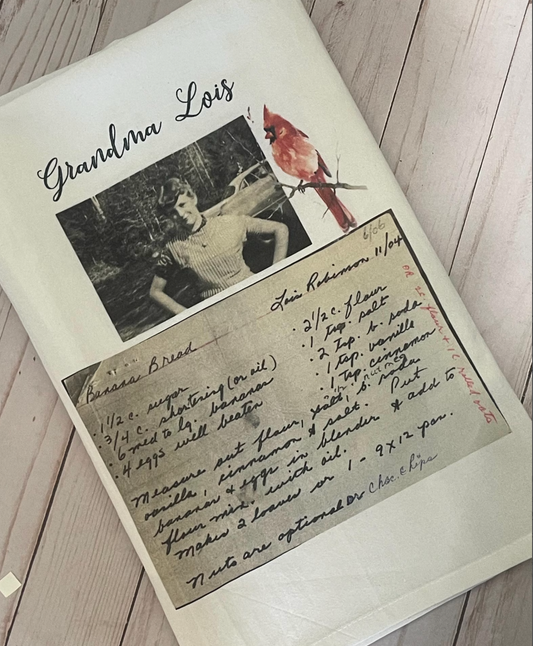 Grandma Lois
6/06
Lois Robinson 11/04
Banana Bread
1 1/2 c. sugar
3/4 c. shortering (or oil)
6 med to lg. bananas
4 eggs well beaten
2 1/2 c. flour
1 tsp. salt
2 tsp. b. soda
1 tsp. vanilla
1 tsp. cinnamon
OR 2c flour + 1 c rolled oats
Measure out flour, salt, b. soda
vanilla, cinnamon & salt. Put
bananas & eggs in blender & add to
flour mix. with oil.
Makes 2 loaves or 1 - 9X12 pan.
Nuts are optional Or Choc. Chips